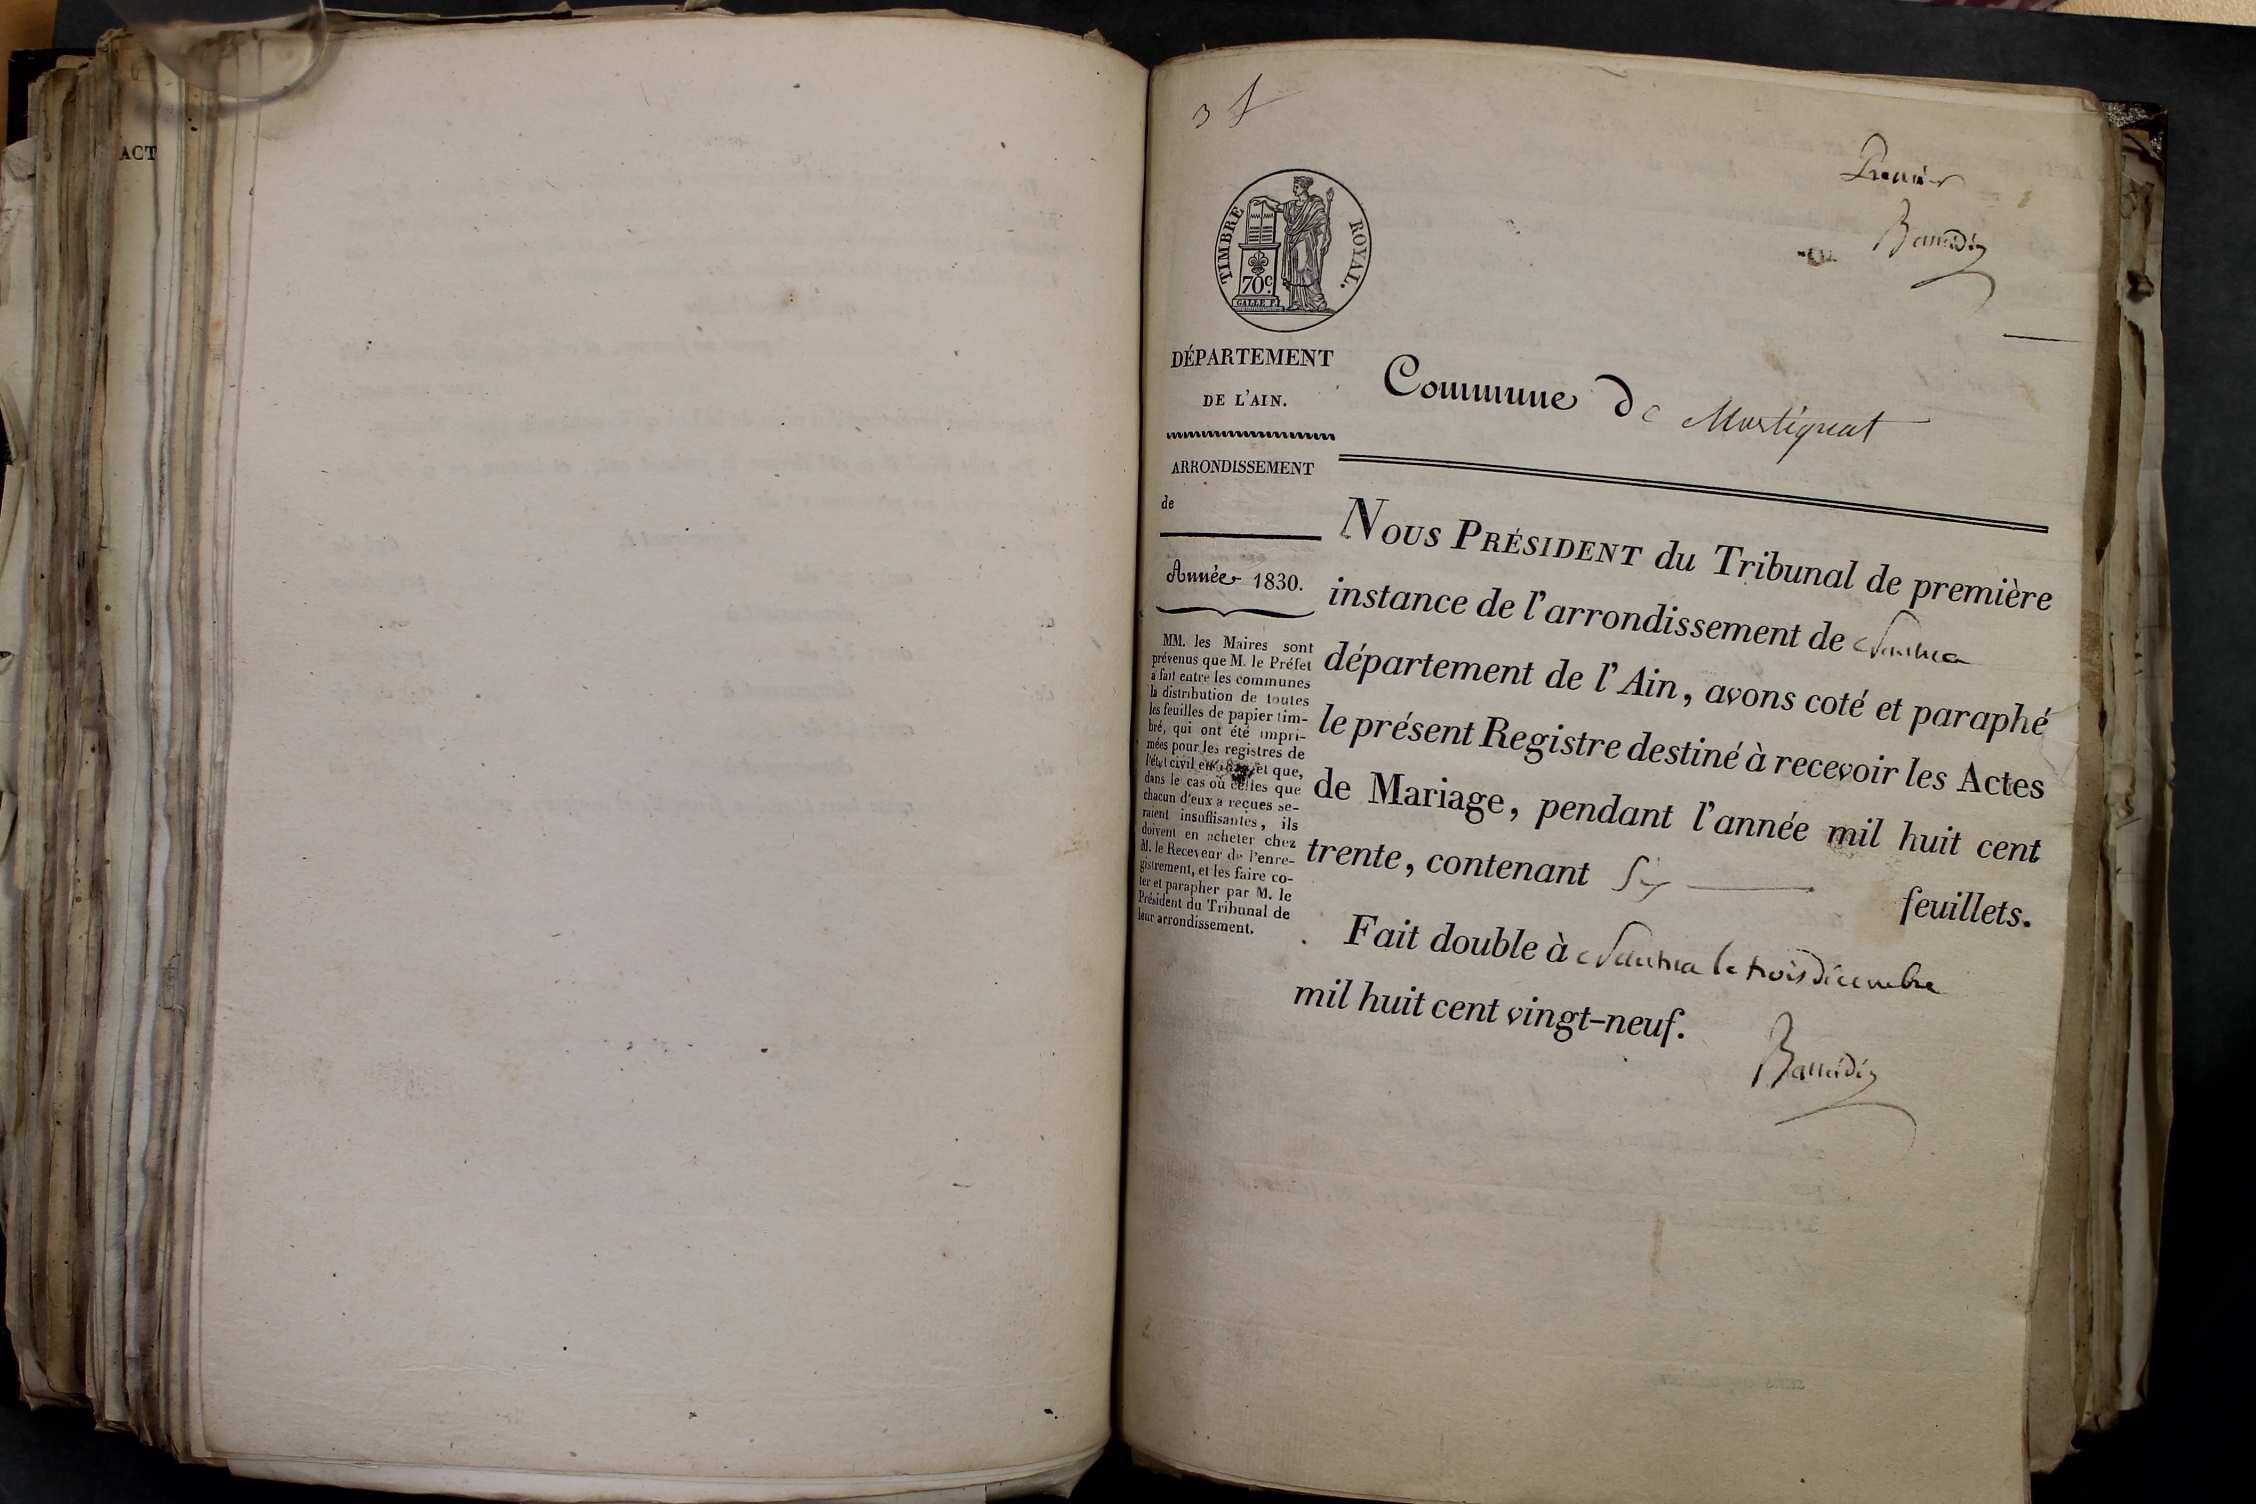 ACT
3
Premier
TIMBRE ROYAL.
70c.
GALLE F.
DÉPARTEMENT
DE L'AIN.
Commune de Martignat
ARRONDISSEMENT
de
Année 1830.
MM. les Maires sont
prévenus que M. le Préfet
a fait entre les communes
la distribution de toutes
les feuilles de papier tim-
bré, qui ont été impri-
mées pour les registres de
l'état civil en et que,
dans le cas où celles que
chacun d'eux a reçues se-
raient insuffisantes, ils
doivent en acheter chez
M. le Receveur de l'enre-
gistrement, et les faire co-
ter et parapher par M. le
Président du Tribunal de
leur arrondissement.
NOUS PRÉSIDENT du Tribunal de première
instance de l'arrondissement de Nantua
département de l'Ain, avons coté et paraphé
le présent Registre destiné à recevoir les Actes
de Mariage, pendant l'année mil huit cent
trente, contenant Six feuillets.
Fait double à Nantua le trois décembre
mil huit cent vingt-neuf.